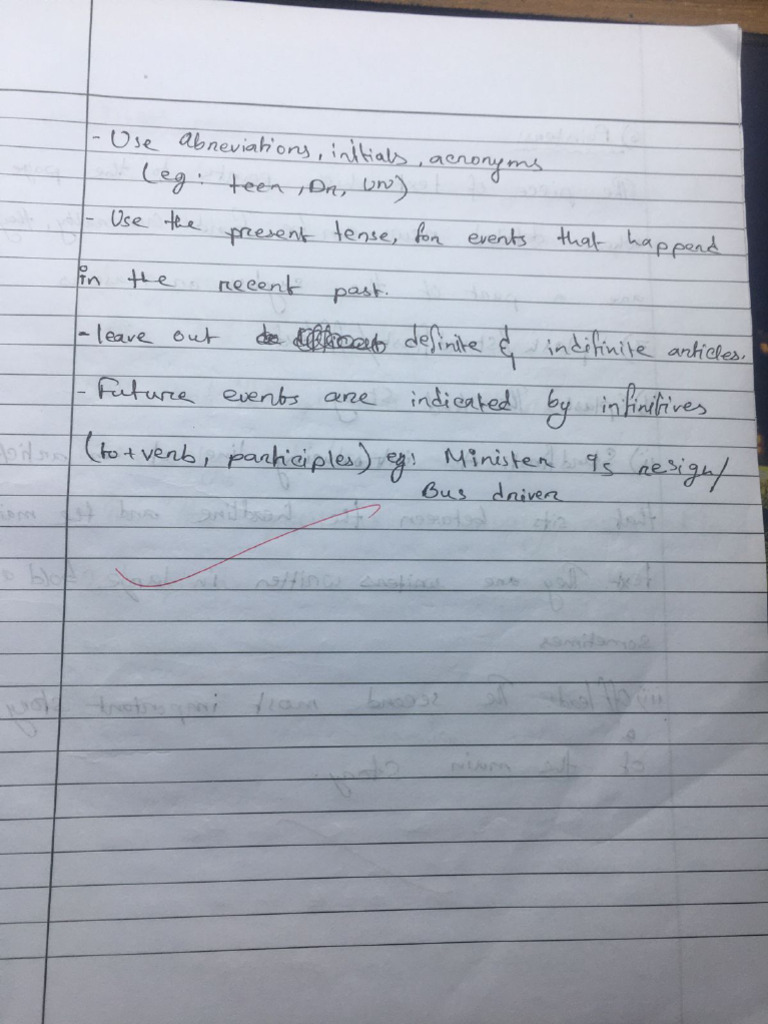 - Use abbreviations, initials, acronyms
(eg: teen, Dr, UN)
- Use the present tense, for events that happend
in the recent past.
- leave out definite & indifinite articles.
- Future events are indicated by infinitives
(to + verb, participles) eg: Minister 9s resign/
Bus driver